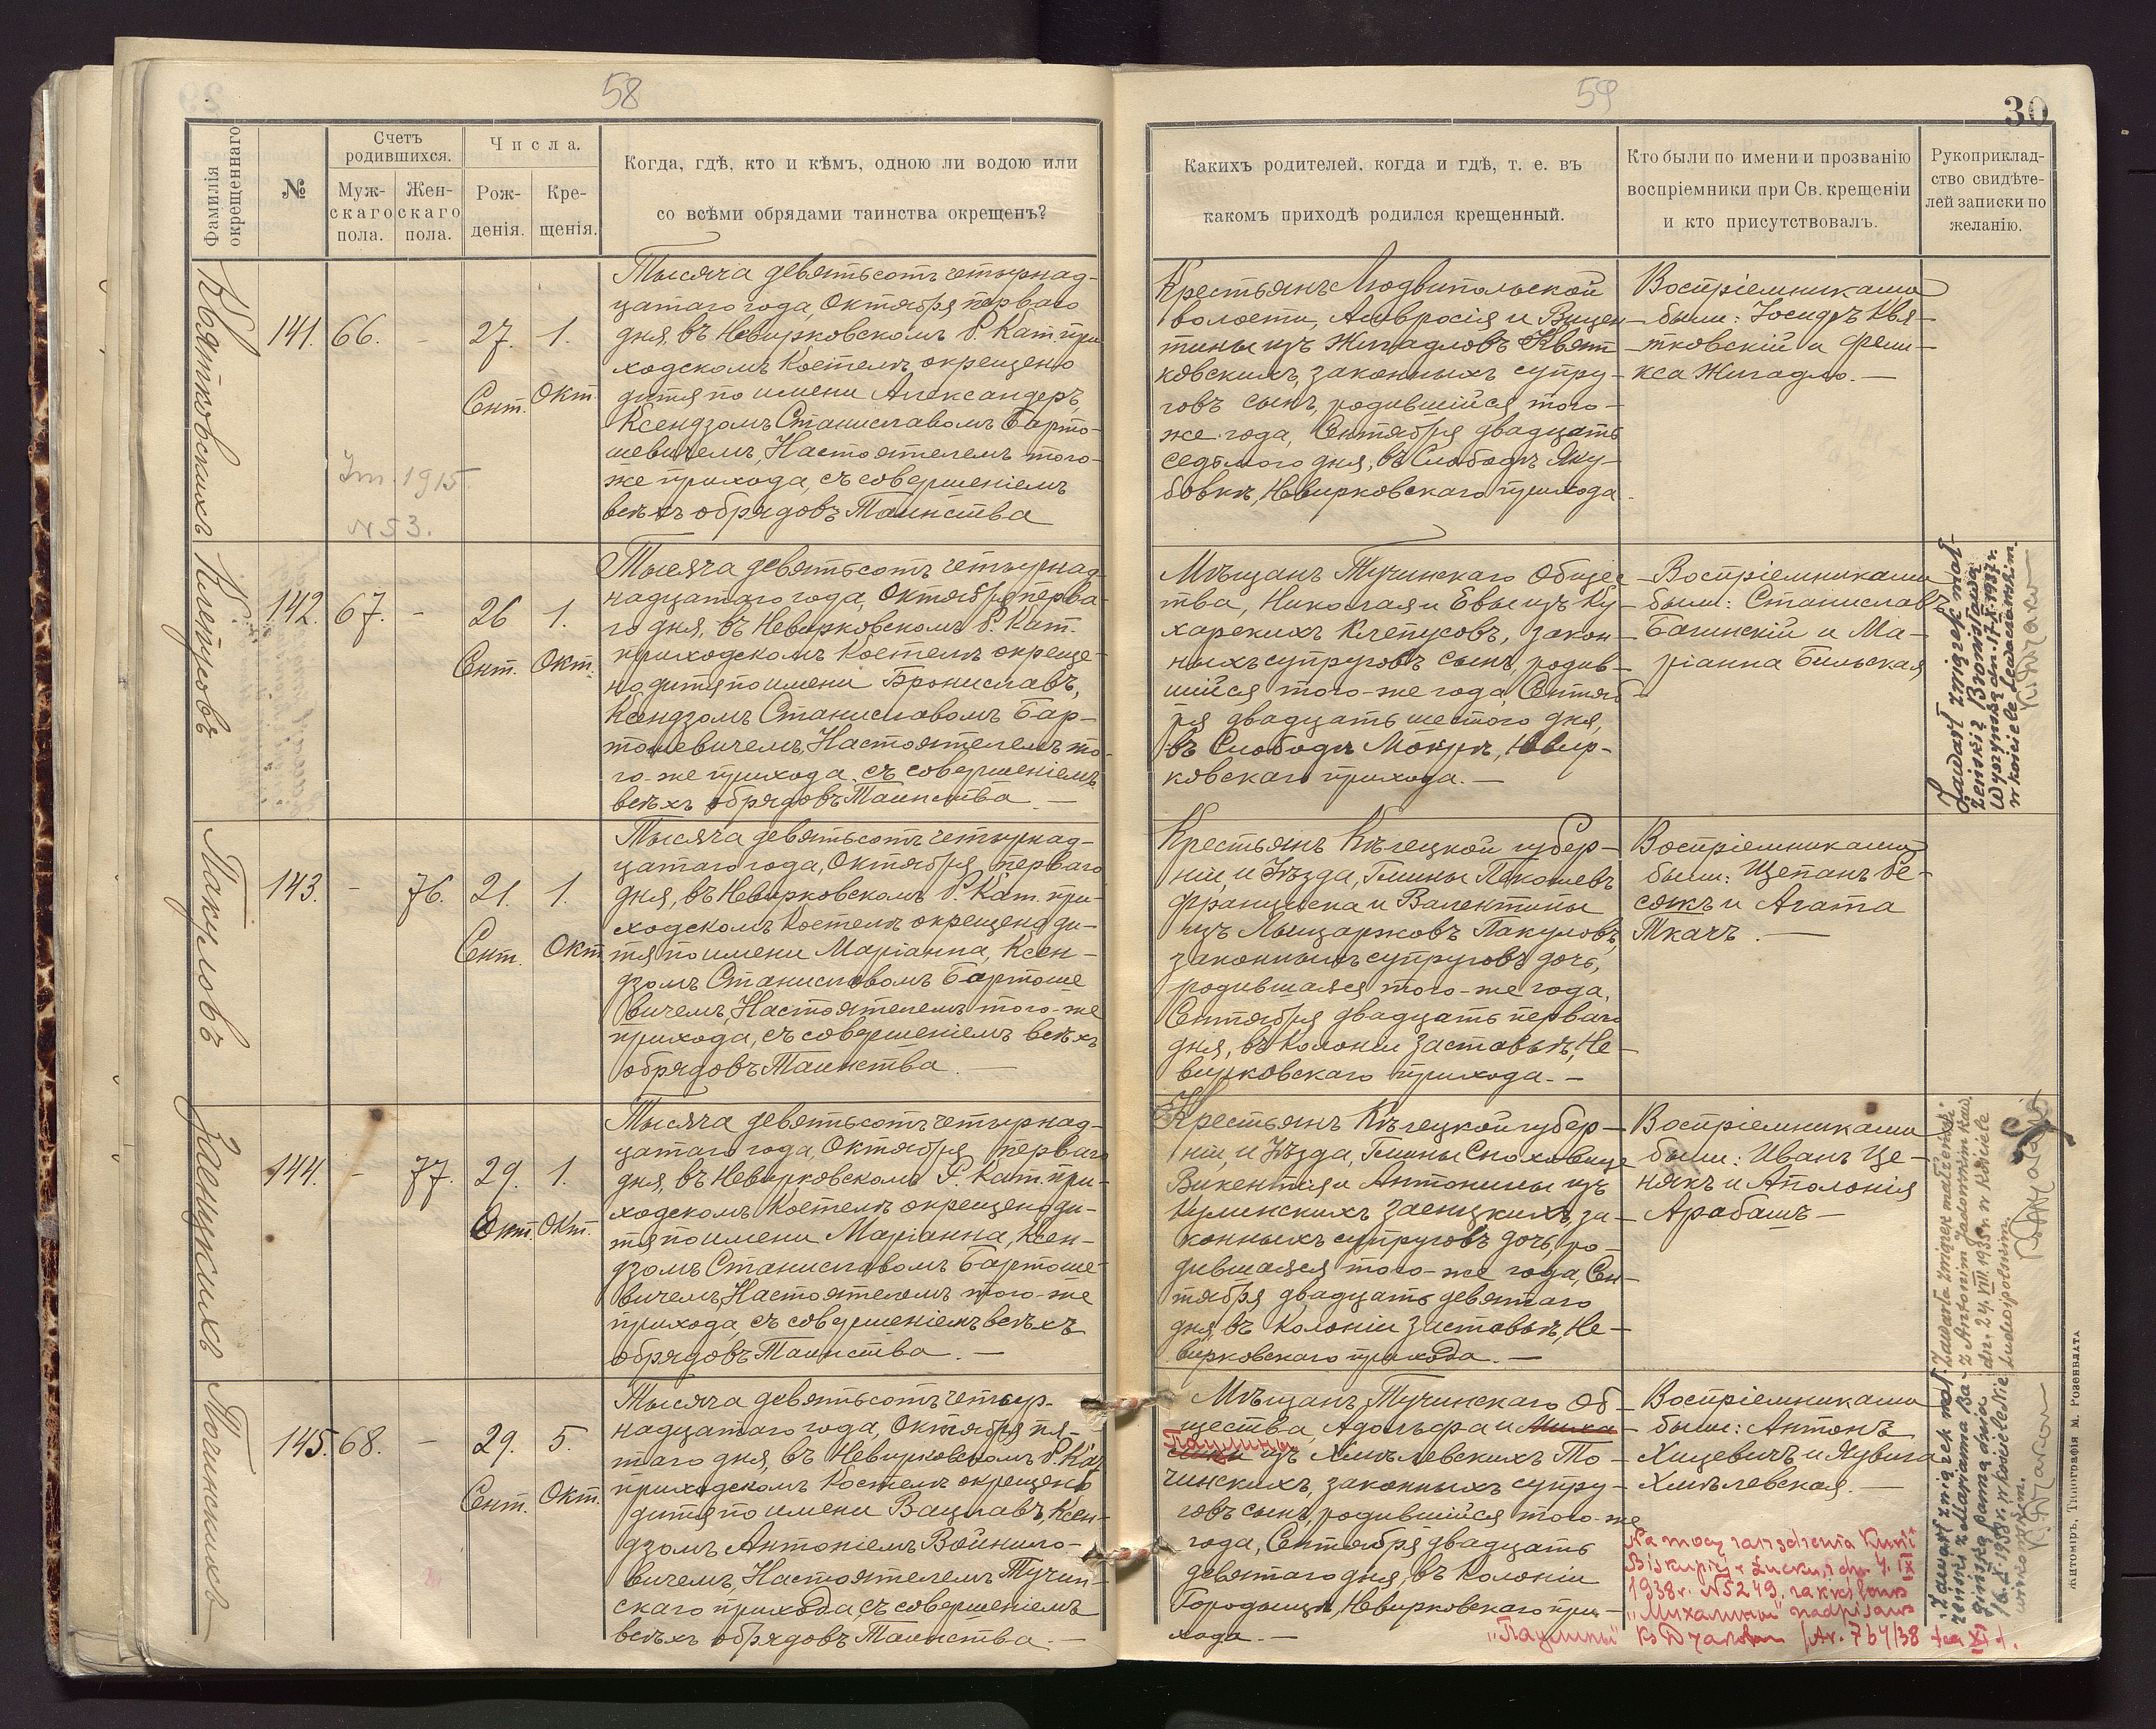 58
Фамилія окрещеннаго
№
Счетъ родившихся.
Мужскаго пола.
Женскаго пола.
Числа.
Рожденія.
Крещенія.
Когда, гдѣ, кто и кѣмъ, одною ли водою или
со всѣми обрядами таинства окрещенъ?
Квятковскихъ
141.
66.
-
27. Сент.
1. Окт.
Im. 1915.
N 53.
Тысяча девятьсотъ четырнад-
цатаго года, Октября перваго
дня, въ Невирковскомъ Р. Кат. при-
ходскомъ Костелѣ окрещено
дитя по имени Александеръ,
Ксендзомъ Станиславомъ Барто-
шевичемъ, Настоятелемъ того-
же прихода, съ совершеніемъ
всѣхъ обрядовъ Таинства
Клепусовъ
142.
67.
-
26 Сент.
1. Окт.
Тысяча девятьсотъ четырнад-
надцатаго года, Октября перва-
го дня, въ Невирковскомъ Р. Кат.
приходскомъ Костелѣ окреще-
но дитя по имени Брониславъ,
Ксендзомъ Станиславомъ Бар-
тошевичемъ, Настоятелемъ то-
го-же прихода, съ совершеніемъ
всѣхъ обрядовъ Таинства. —
Пакуловъ
143.
-
76.
21. Сент.
1. Окт.
Тысяча девятьсотъ четырнад-
цатаго года, Октября перваго
дня, въ Невирковскомъ Р. Кат. при-
ходскомъ Костелѣ окрещено ди-
тя по имени Маріанна, Ксен-
дзомъ Станиславомъ Бартоше
вичемъ, Настоятелемъ того-же
прихода, съ совершеніемъ всѣхъ
обрядовъ Таинства. —
Заенцкихъ
144.
-
77.
29. Сент.
1. Окт.
Тысяча девятьсотъ четырнад-
цатаго года, Октября перваго
дня, въ Невирковскомъ Р. Кат. при-
ходскомъ Костелѣ окрещено ди-
тя по имени Маріанна, Ксен-
дзомъ Станиславомъ Бартоше-
вичемъ, Настоятелемъ того-же
прихода, съ совершеніемъ всѣхъ
обрядовъ Таинства. —
Точинскихъ
145.
68.
-
29. Сент.
5. Окт.
Тысяча девятьсотъ четыр-
надцатаго года, Октября пя-
таго дня, въ Невирковскомъ Р. Кат
приходскомъ Костелѣ окрещено
дитя по имени Вацлавъ, Ксен-
дзомъ Антоніемъ Войнило-
вичемъ, Настоятелемъ Тучин-
скаго прихода съ совершеніемъ
всѣхъ обрядовъ Таинства. —
59
30
Какихъ родителей, когда и гдѣ, т. е. въ
какомъ приходѣ родился крещенный.
Кто были по имени и прозванію
воспріемники при Св. крещеніи
и кто присутствовалъ.
Рукоприклад-
ство свидѣте-
лей записки по
желанію.
Крестьянъ Людвипольской
волости, Амвросія и Вицен-
тины изъ Жигадловъ Квят-
ковскихъ, законныхъ супру-
говъ сынъ, родившійся того-
же года, Сентября двадцать
седьмого дня, въ Слободѣ Яку-
бовкѣ, Невирковскаго прихода.
Воспріемниками
были: Іосифъ Квя-
тковскій и Фели-
кса Жигадло. —
Мѣщанъ Тучинскаго Общес-
тва, Николая и Евы изъ Ку-
харскихъ Клепусовъ, закон-
ныхъ супруговъ сынъ, родив-
шійся того-же года, Сентяб-
ря двадцать шестого дня,
въ Слободѣ Мокрѣ, Невир-
ковскаго прихода. —
Воспріемниками
были: Станиславъ
Багинскій и Ма-
ріанна Бильская
Zawarł związek mał-
żeński z Bronisławą
Wyczyńską dn. 17.X.1937 r.
w kościele
Крестьянъ Кѣлецкой губер-
ніи, и Уѣзда, Гмины Пекошевъ
Францишка и Валентины
изъ Лыщаржовъ Пакуловъ,
законныхъ супруговъ дочь,
родившаяся того-же года,
Сентября двадцать перваго
дня, въ Колоніи Заставьѣ, Не-
вирковскаго прихода. —
Воспріемниками
были: Щепанъ Бе-
сякъ и Агата
Ткачъ. —
Крестьянъ Кѣлецкой губер-
ніи, и Уѣзда, Гмины Снохавице
Викентія и Антонины изъ
Кулинскихъ Заенцкихъ, за-
конныхъ супруговъ дочь, ро-
дившаяся того-же года, Сен-
тября двадцать девятаго
дня, въ Колоніи Заставьѣ, Не-
вирковскаго прихода. —
Воспріемниками
были: Иванъ Це-
някъ и Аполонія
Арабашъ —
Zawarła związek małżeński
z Antonim
dn. 24.VIII.1935 r. w kościele
Ludwipolskim.
Мѣщанъ Тучинскаго Об-
щества, Адольфа и Миха-
Паулины
лины изъ Хмѣлевскихъ То-
чинскихъ, законныхъ супру-
говъ сынъ, родившійся того-же
года, Сентября двадцать
девятаго дня, въ Колоніи
Городыщѣ, Невирковскаго при-
хода. —
Воспріемниками
были: Антонъ
Хицевичъ и Ядвига
Хмѣлевская. —
Zawarł związek mał-
żeński z Marjanna Ba-
gińską panną dnia
16.X.1938 r. w kościele Nie-
wirkowskim.
Na mocy zarządzenia Kurii
Biskupiej w Łucku, z dn. 4. IX
1938 r. N 5249, zakreślono
„Михалины" nadpisano
„Паулины"
Житоміръ, Типографія М. Розенблата